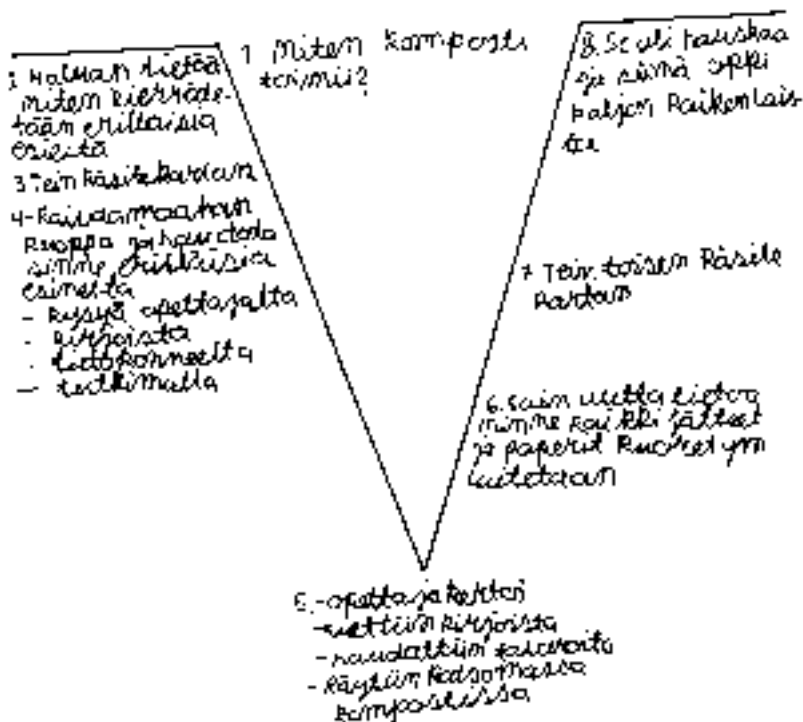 1 Miten komposti
toimii?
2. Haluan tietoa
miten kierräde-
tään erillaisia
esieitä
3 Tein käsitekartan
4- Kaivamaahan
kuoppa ja haudata
sinne
esineitä
- kysyä opettajalta
- kirjoista
- tietokoneelta
- tutkimalla
5. - opettaja kertoi
- luettiin kirjoista
- haudattiin tavaroita
- käytiin katsomassa
kompostissa
6. Sain uutta tietoa
minne kaikki jätteet
ja paperit ruoket ym
laitetaan
7 Tein toisen käsite
kartan
8. Se oli hauskaa
ja siinä oppi
paljon kaikenlais
ta